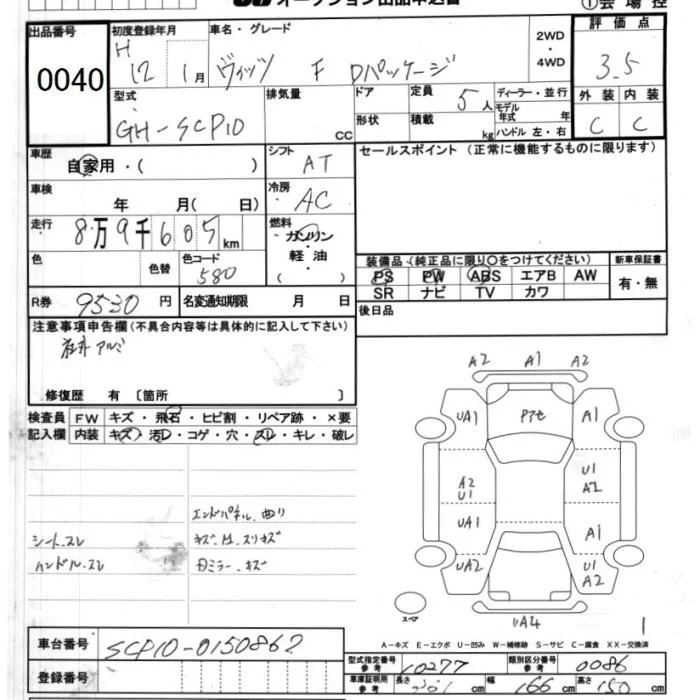 オークション出品申込書
①会場控
出品番号
0040
初度登録年月
H 12 1月
車名・グレード
ヴィッツ F Dパッケージ
2WD
・
4WD
評価点
3.5
型式
GH-SCP10
排気量
cc
ドア
形状
定員
5人
積載
kg
ディーラー・並行
モデル年式 年
ハンドル 左・右
外装 内装
C C
車歴
自家用・( )
シフト
AT
セールスポイント (正常に機能するものに限ります)
車検
年 月( 日)
冷房
AC
走行
8万9千605km
燃料
ガソリン
軽油
( )
色
色替
色コード
580
装備品 (純正品に限り○をつけてください)
PS PW ABS エアB AW
SR ナビ TV カワ
新車保証書
有・無
R券
9530円
名変通知期限 月 日
後日品
注意事項申告欄 (不具合内容等は具体的に記入して下さい)
社外アルミ
修復歴 有 〔箇所 〕
検査員
記入欄
FW キズ・飛石・ヒビ割・リペア跡・×要
内装 キズ・汚レ・コゲ・穴・スレ・キレ・破レ
エンドパネル.曲り
シート.スレ
ハンドル.スレ
ミラー.キズ
A2 A1 A2
UA1 A1
A2
U1
U1
A2
UA1 A1
UA2
U1
A2
UA4
スペア
1
A-キズ E-エクボ U-凹み W-補修跡 S-サビ C-腐食 XX-交換済
車台番号
SCP10-0150862
登録番号
型式指定番号
参考
10277
類別区分番号
参考
0086
車庫証明用
参考
長さ cm
幅 166 cm
高さ 150 cm